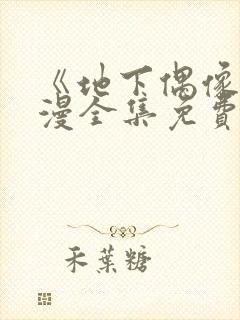 《地下偶像
漫全集免費
禾葉糖